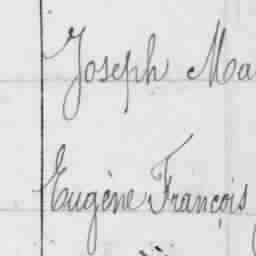 Joseph Ma
Eugène François